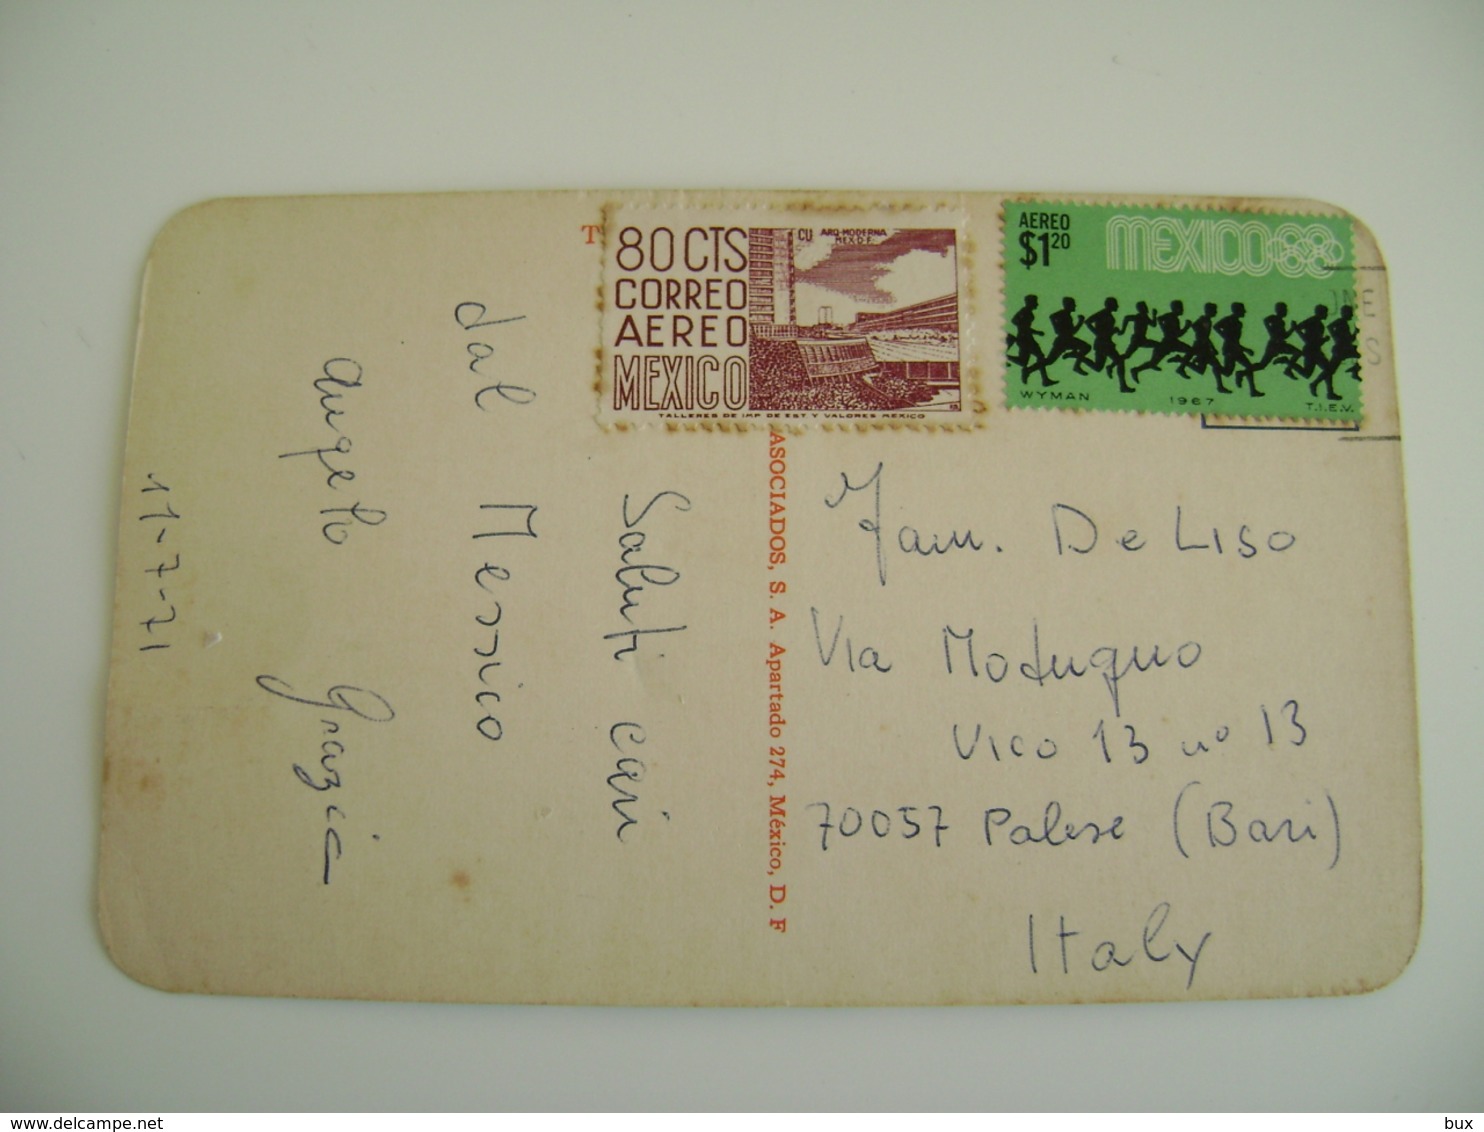 T
80 CTS
CORREO
AEREO
MEXICO
CU ARQ-MODERNA
MEX.D.F.
TALLERES DE IMP DE EST Y VALORES MEXICO
AEREO
$1.20
MEXICO68
WYMAN 1967 T.I.E.V.
ASOCIADOS, S. A. Apartado 274, México, D. F
Saluti cari
dal Messico
Angelo Grazia
11-7-71
Fam. De Liso
Via Modugno
Vico 13 nº 13
70057 Palese (Bari)
Italy
www.delcampe.net
bux